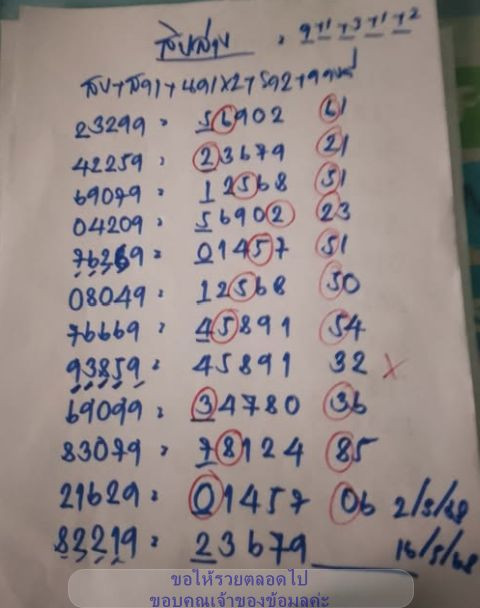 สิบล่าง = 9+1+3+1+2
23299 = 56902 61
42259 = 23679 21
69079 = 12568 51
04209 = 56902 23
76269 = 01457 51
08049 = 12568 50
76669 = 45891 54
93859 = 45891 32 ×
69099 = 34780 36
83079 = 78124 85
21629 = 01457 06 2/5/68
83219 = 23679 16/5/68
ขอให้รวยตลอดไป
ขอบคุณเจ้าของข้อมูลค่ะ